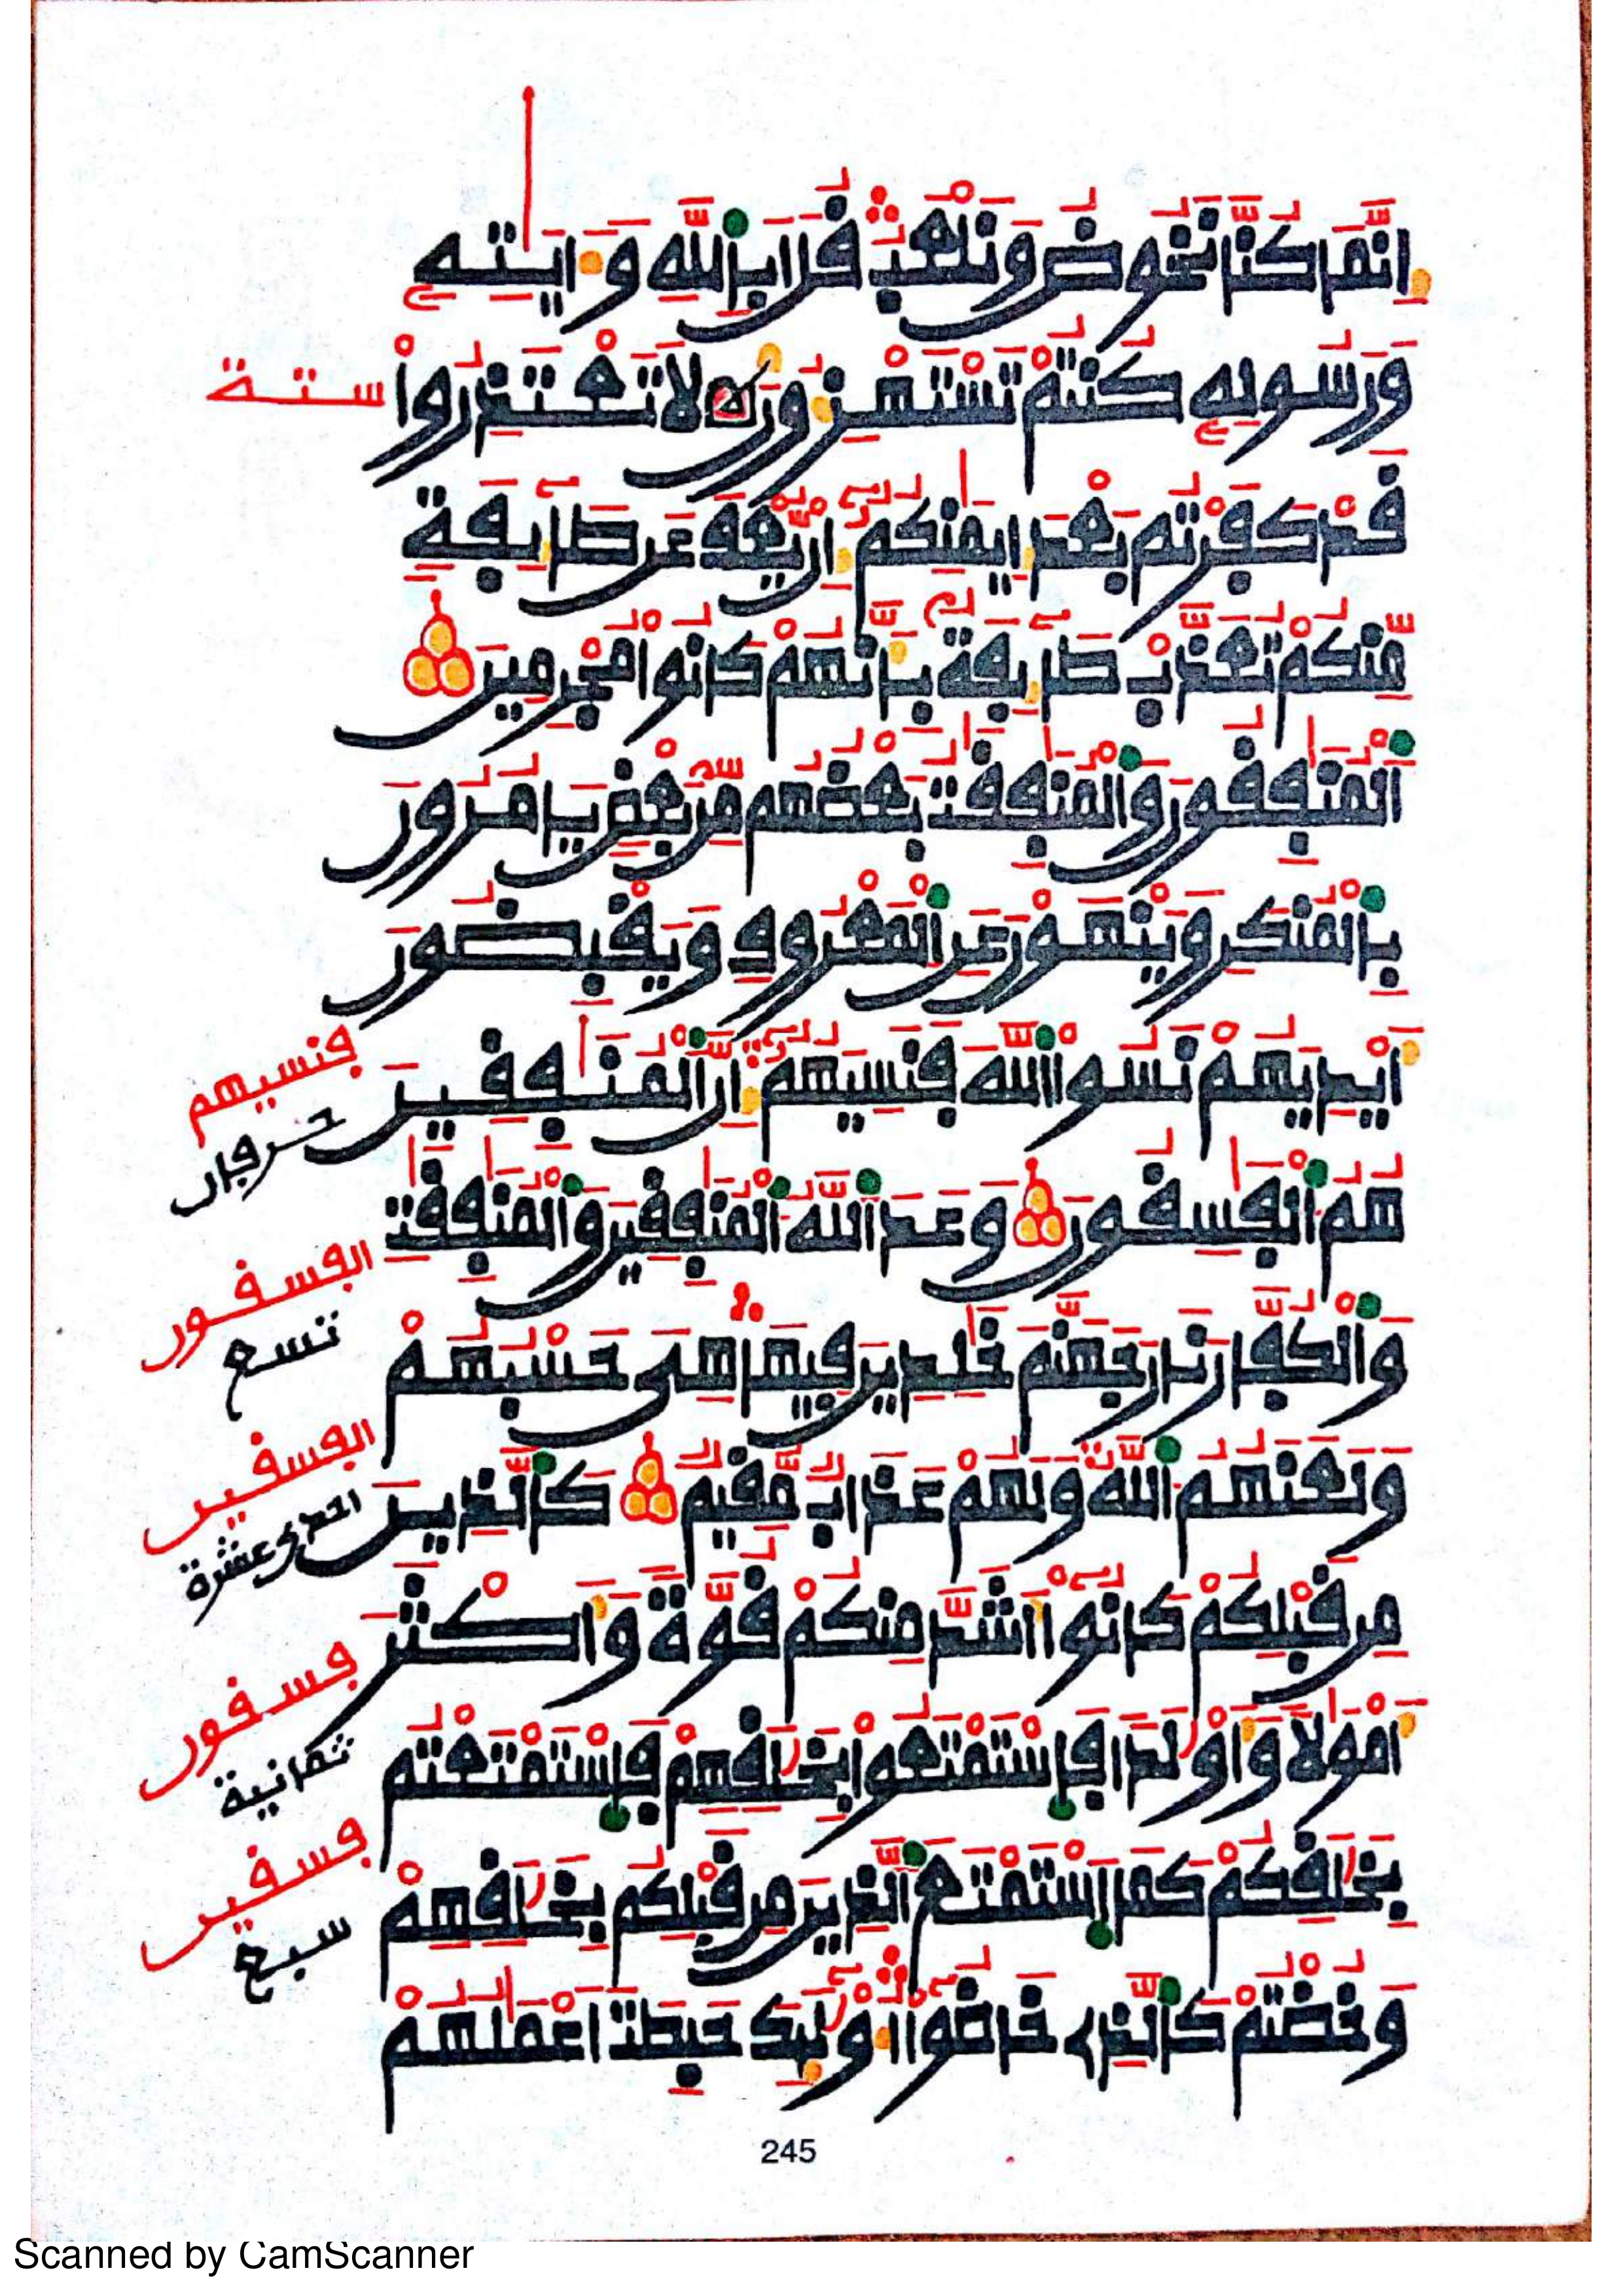 إِنَّمَا كُنَّا نَخُوضُ وَنَلْعَبُ قُلَ اَبِاللَّهِ وَءَايَٰتِهِ
وَرَسُولِهِ كُنتُمْ تَسْتَهْزِءُونَ لَا تَعْتَذِرُواْ ستة
قَدْ كَفَرْتُم بَعْدَ إِيمَٰنِكُمُ إِنْ يُّعْفَ عَن طَآئِفَةٍ
مِّنكُمْ تُعَذَّبْ طَآئِفَةٌ بِأَنَّهُمْ كَانُواْ مُجْرِمِينَ
اَلْمُنَٰفِقُونَ وَالْمُنَٰفِقَٰتُ بَعْضُهُم مِّنۢ بَعْضٍ يَامُرُونَ
بِالْمُنكَرِ وَيَنْهَوْنَ عَنِ اِلْمَعْرُوفِ وَيَقْبِضُونَ
أَيْدِيَهُمْ نَسُواْ اللَّهَ فَنَسِيَهُمُ إِنَّ اَلْمُنَٰفِقِينَ
فنسيهم
حرفان
هُمُ اُلْفَٰسِقُونَ وَعَدَ اَللَّهُ اُلْمُنَٰفِقِينَ وَالْمُنَٰفِقَٰتِ
الفسقون
تسع
وَالْكُفَّارَ نَارَ جَهَنَّمَ خَٰلِدِينَ فِيهَا هِيَ حَسْبُهُمْ
وَلَعَنَهُمُ اُللَّهُ وَلَهُمْ عَذَابٌ مُّقِيمٌ كَالذِينَ
الفسقين
احدى عشرة
مِن قَبْلِكُمْ كَانُواْ أَشَدَّ مِنكُمْ قُوَّةً وَأَكْثَرَ
فسقون
ثمانية
أَمْوَٰلًا وَأَوْلَٰدًا فَاسْتَمْتَعُواْ بِخَلَٰقِهِمْ فَاسْتَمْتَعْتُم
بِخَلَٰقِكُمْ كَمَا اَسْتَمْتَعَ اَلذِينَ مِن قَبْلِكُم بِخَلَٰقِهِمْ
فسقين
سبع
وَخُضْتُمْ كَالذِي خَاضُواْ أُوْلَٰئِكَ حَبِطَتَ اَعْمَٰلُهُمْ
245
Scanned by CamScanner